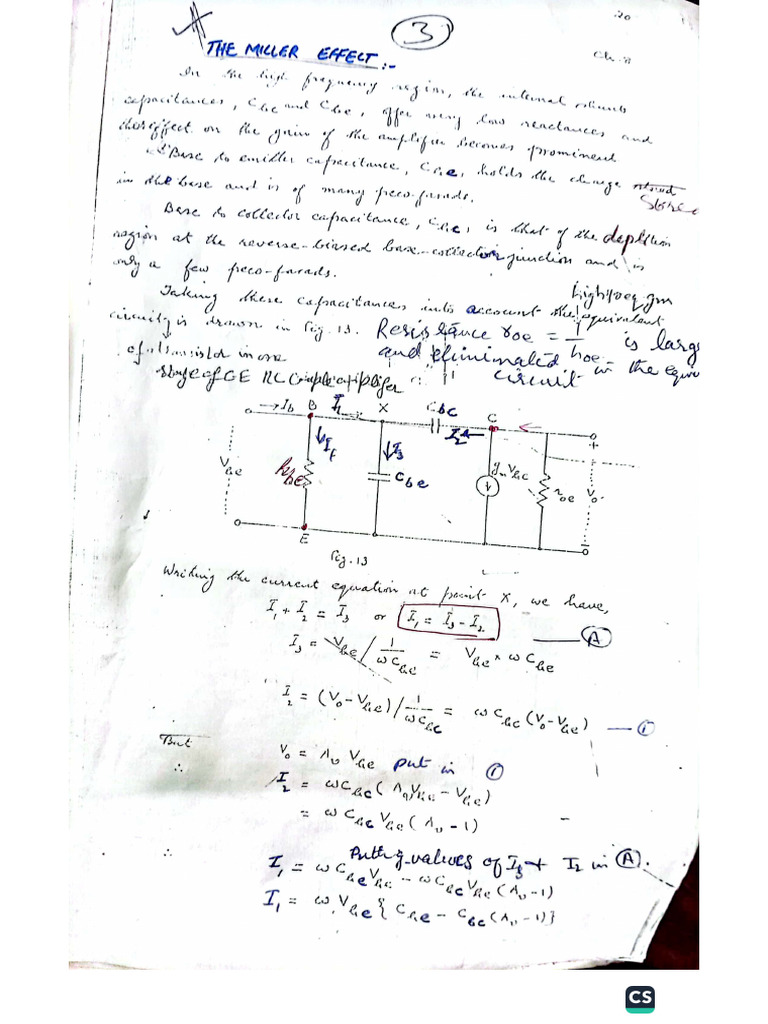 3
20
Ch. 8
THE MILLER EFFECT :-
In the high frequency region, the internal shunt
capacitances, Cbc and Cbe, offer very low reactances and
their effect on the gain of the amplifier becomes prominent
Base to emitter capacitance, Cbe, holds the charge stored
Store
in the base and is of many peco-farads.
Base to collector capacitance, Cbc, is that of the depltion
region at the reverse-biased base-collector junction and is
only a few peco-farads.
Taking these capacitances into account the equivalent
high freq
circuit is drawn in fig. 13. Resistance roe = 1/hoe is larg
of transistor in one and eliminated in the equiv
stage of CE RC couple amplifier circuit
→Ib B I1 X Cbc C
If I3 I2
Vbe hbe Cbe gmVbe roe Vo
+
E
Fig. 13
Writing the current equation at point X, we have,
I1 + I2 = I3 or I1 = I3 - I2 — A
I3 = Vbe / 1/ωCbe = Vbe × ωCbe
I2 = (Vo - Vbe) / 1/ωCbc = ωCbc (Vo - Vbe) — 1
But Vo = Av Vbe put in 1
∴ I2 = ωCbc (AvVbe - Vbe)
= ωCbc Vbe (Av - 1)
∴ Putting values of I3 + I2 in A.
I1 = ωCbeVbe - ωCbcVbe (Av - 1)
I1 = ωVbe { Cbe - Cbc (Av - 1)}
CS